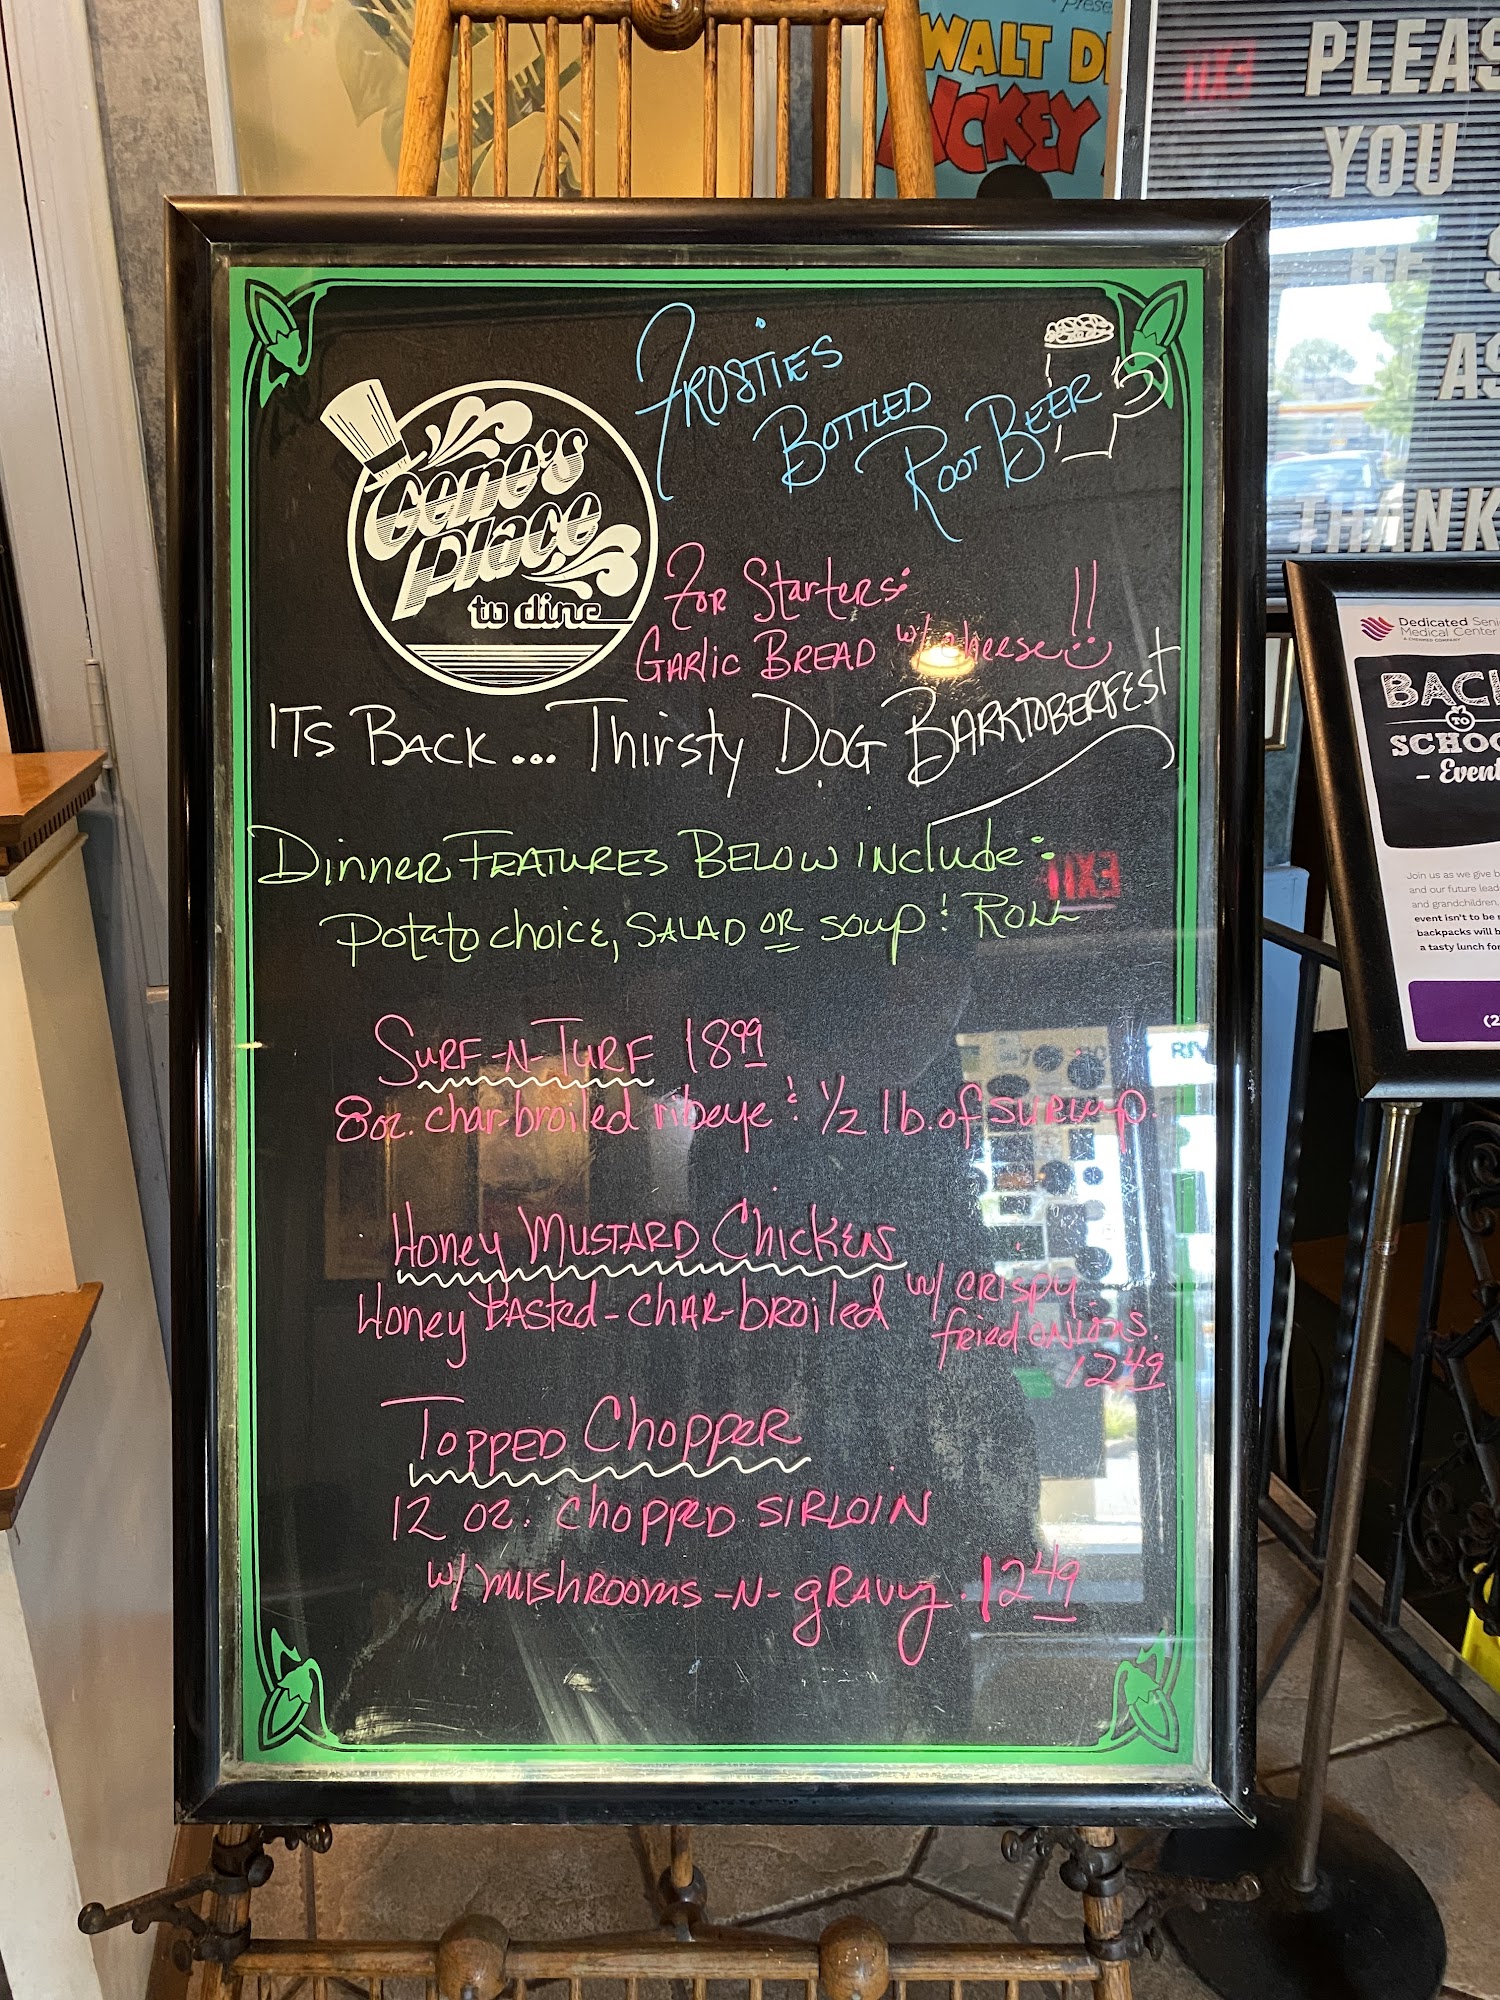 prese
WALT D
MICKEY
PLEAS
YOU
RE S
AS
THANK
Gene's
place
to dine
FROSTIES
BOTTLED
ROOT BEER
FOR Starters:
GARLIC BREAD w/ cheese!!
ITS BACK... Thirsty DOG BARKTOBERFEST
Dinner FEATURES BELOW include:
Potato choice, SALAD OR soup & ROLL
SURF-N-TURF 18.99
8oz. char-broiled ribeye & 1/2 lb. of shrimp.
Honey MUSTARD Chicken
Honey basted-CHAR-broiled w/ CRISPY
fried ONIONS.
12.49
TOPPED CHOPPER
12 oz. chopped SIRLOIN
w/ mushrooms-N-gravy. 12.49
EXIT
Dedicated Seni
Medical Center
BACK
TO
SCHOO
- Event
Join us as we give b
and our future lead
and grandchildren.
event isn't to be
backpacks will b
a tasty lunch for
(2